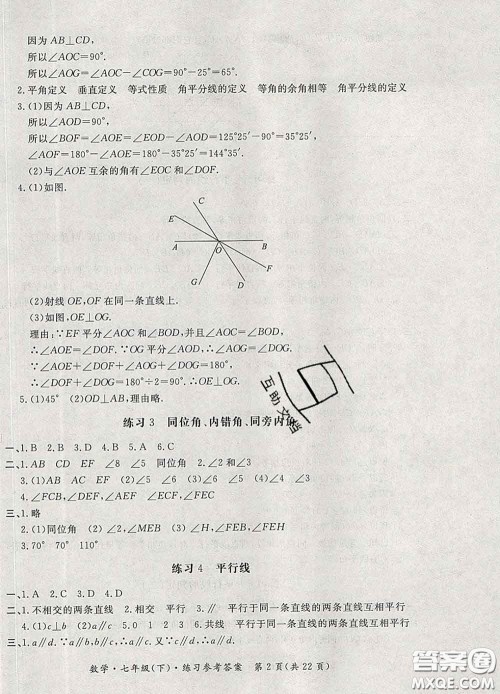 因为 AB⊥CD,
所以∠AOC=90°.
所以∠AOG=∠AOC-∠COG=90°-25°=65°.
2.平角定义 垂直定义 等式性质 角平分线的定义 等角的余角相等 角平分线的定义
3.(1)因为 AB⊥CD,
所以∠AOD=90°.
所以∠BOF=∠AOE=∠DOE-∠AOD=125°25′-90°=35°25′,
∠AOF=180°-∠AOE=180°-35°25′=144°35′.
(2)与∠AOE 互余的角有∠EOC 和∠DOF.
4.(1)如图.
C
E
A O B
F
G D
(2)射线 OE,OF 在同一条直线上.
(3)如图,OE⊥OG.
理由:∵EF 平分∠AOC 和∠BOD,并且∠AOC=∠BOD,
∴∠AOE=∠DOF.∵OG 平分∠AOD,∴∠AOG=∠DOG.
∴∠AOE+∠AOG=∠DOF+∠DOG.
∴∠AOE+∠AOG=180°÷2=90°.∴OE⊥OG.
5.(1)45° (2)OD⊥AB,理由略.
练习 3 同位角、内错角、同旁内角
一、1.B 2.B 3.D 4.B
二、1.AB CD EF ∠8 ∠5 ∠6 2.∠2 和∠3
3.(1)AC EF BD (2)AB CD AC (3)∠5
4.∠FCB,∠FEB,∠DEF,∠DCF
三、1.略
2.(1)同位角 (2)∠2,∠MEB (3)∠HFE,∠HFD
3.70° 70° 110°
练习 4 平行线
一、1.A 2.D 3.A 4.D
二、1.不相交的两条直线 2.相交 平行 3.∥ 平行于同一条直线的两条直线互相平行
4.(1)c⊥b (2)a⊥c 5.a∥c 平行于同一条直线的两条直线互相平行
三、1.∵a∥d.又∵c∥d.∴a∥c.又∵b∥c.∴a∥b.
数学·七年级(下)·练习参考答案 第 2 页(共 22 页)
互助文档
答案圈
MXQE.COM